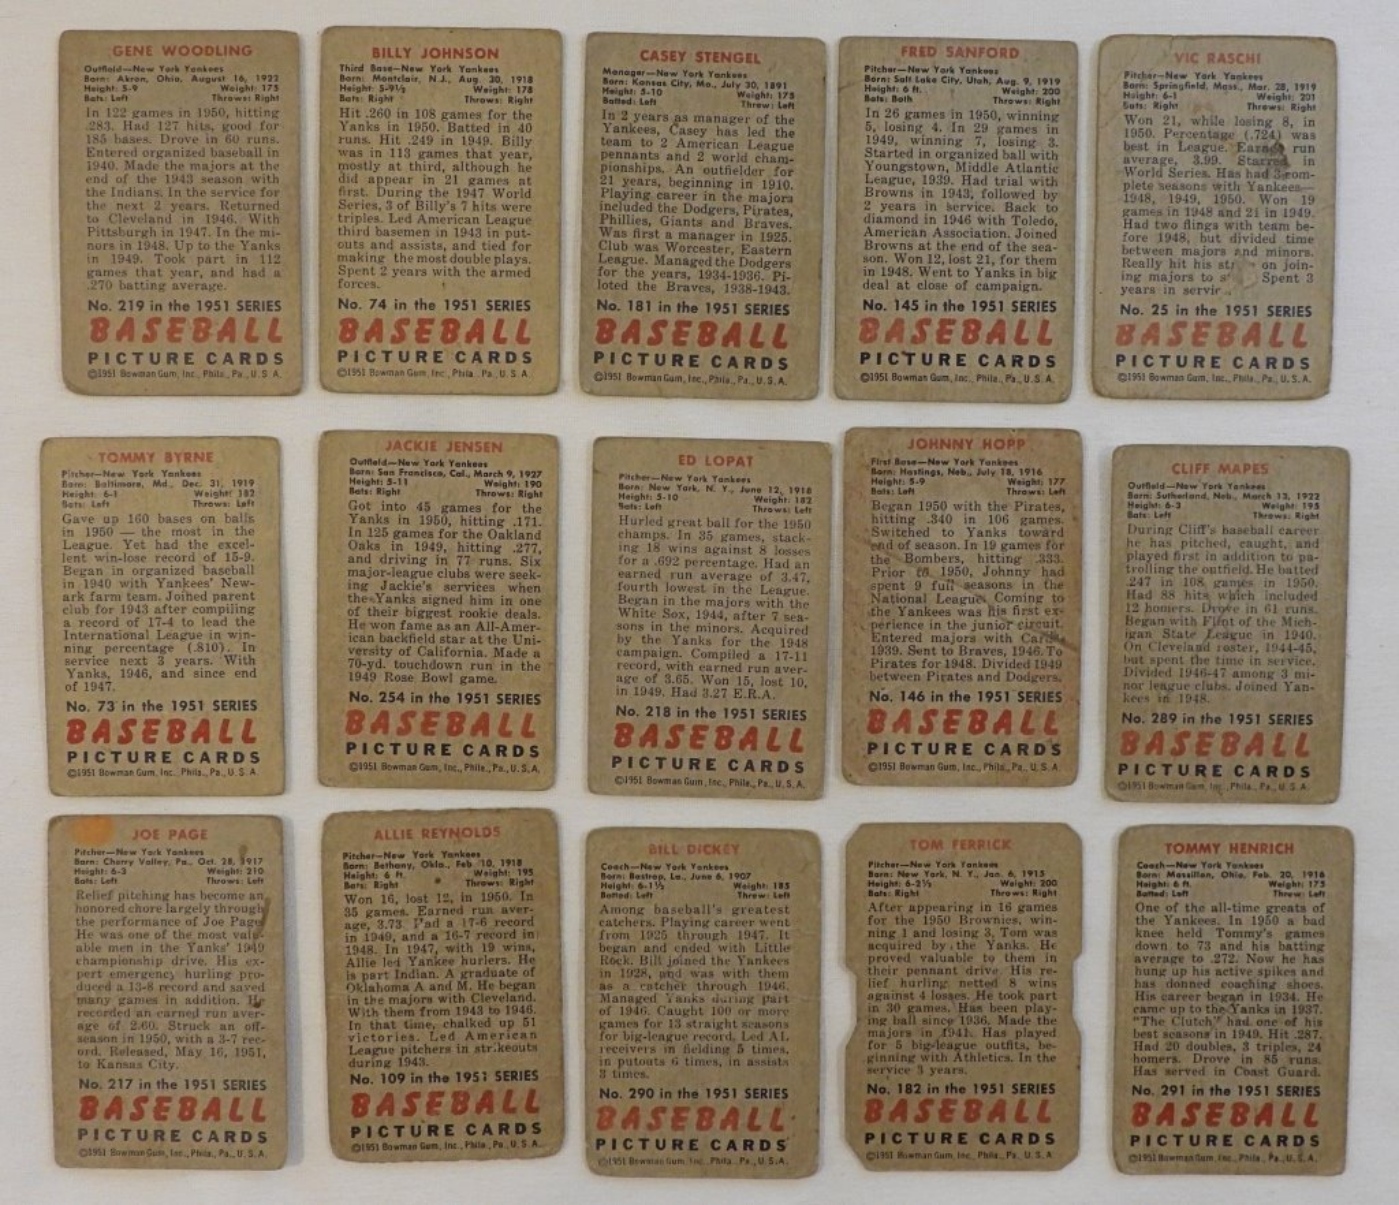 GENE WOODLING
Outfield—New York Yankees
Born: Akron, Ohio, August 16, 1922
Height: 5-9 Weight: 175
Bats: Left Throws: Right
In 122 games in 1950, hitting
.283. Had 127 hits, good for
185 bases. Drove in 60 runs.
Entered organized baseball in
1940. Made the majors at the
end of the 1943 season with
the Indians. In the service for
the next 2 years. Returned
to Cleveland in 1946. With
Pittsburgh in 1947. In the mi-
nors in 1948. Up to the Yanks
in 1949. Took part in 112
games that year, and had a
.270 batting average.
No. 219 in the 1951 SERIES
BASEBALL
PICTURE CARDS
©1951 Bowman Gum, Inc., Phila., Pa., U. S. A.
BILLY JOHNSON
Third Base—New York Yankees
Born: Montclair, N.J., Aug. 30, 1918
Height: 5-9½ Weight: 178
Bats: Right Throws: Right
Hit .260 in 108 games for the
Yanks in 1950. Batted in 40
runs. Hit .249 in 1949. Billy
was in 113 games that year,
mostly at third, although he
did appear in 21 games at
first. During the 1947 World
Series, 3 of Billy's 7 hits were
triples. Led American League
third basemen in 1943 in put-
outs and assists, and tied for
making the most double plays.
Spent 2 years with the armed
forces.
No. 74 in the 1951 SERIES
BASEBALL
PICTURE CARDS
©1951 Bowman Gum, Inc., Phila., Pa., U. S. A.
CASEY STENGEL
Manager—New York Yankees
Born: Kansas City, Mo., July 30, 1891
Height: 5-10 Weight: 175
Batted: Left Threw: Left
In 2 years as manager of the
Yankees, Casey has led the
team to 2 American League
pennants and 2 world cham-
pionships. An outfielder for
21 years, beginning in 1910.
Playing career in the majors
included the Dodgers, Pirates,
Phillies, Giants and Braves.
Was first a manager in 1925.
Club was Worcester, Eastern
League. Managed the Dodgers
for the years, 1934-1936. Pi-
loted the Braves, 1938-1943.
No. 181 in the 1951 SERIES
BASEBALL
PICTURE CARDS
©1951 Bowman Gum, Inc., Phila., Pa., U. S. A.
FRED SANFORD
Pitcher—New York Yankees
Born: Salt Lake City, Utah, Aug. 9, 1919
Height: 6 ft. Weight: 200
Bats: Both Throws: Right
In 26 games in 1950, winning
5, losing 4. In 29 games in
1949, winning 7, losing 3.
Started in organized ball with
Youngstown, Middle Atlantic
League, 1939. Had trial with
Browns in 1943, followed by
2 years in service. Back to
diamond in 1946 with Toledo,
American Association. Joined
Browns at the end of the sea-
son. Won 12, lost 21, for them
in 1948. Went to Yanks in big
deal at close of campaign.
No. 145 in the 1951 SERIES
BASEBALL
PICTURE CARDS
©1951 Bowman Gum, Inc., Phila., Pa., U. S. A.
VIC RASCHI
Pitcher—New York Yankees
Born: Springfield, Mass., Mar. 28, 1919
Height: 6-1 Weight: 201
Bats: Right Throws: Right
Won 21, while losing 8, in
1950. Percentage (.724) was
best in League. Earned run
average, 3.99. Starred in
World Series. Has had 3 com-
plete seasons with Yankees—
1948, 1949, 1950. Won 19
games in 1948 and 21 in 1949.
Had two flings with team be-
fore 1948, but divided time
between majors and minors.
Really hit his on join-
ing majors to Spent 3
years in
No. 25 in the 1951 SERIES
BASEBALL
PICTURE CARDS
©1951 Bowman Gum, Inc., Phila., Pa., U. S. A.
TOMMY BYRNE
Pitcher—New York Yankees
Born: Baltimore, Md., Dec. 31, 1919
Height: 6-1 Weight: 182
Bats: Left Throws: Left
Gave up 160 bases on balls
in 1950 — the most in the
League. Yet had the excel-
lent win-lose record of 15-9.
Began in organized baseball
in 1940 with Yankees' New-
ark farm team. Joined parent
club for 1943 after compiling
a record of 17-4 to lead the
International League in win-
ning percentage (.810). In
service next 3 years. With
Yanks, 1946, and since end
of 1947.
No. 73 in the 1951 SERIES
BASEBALL
PICTURE CARDS
©1951 Bowman Gum, Inc., Phila., Pa., U. S. A.
JACKIE JENSEN
Outfield—New York Yankees
Born: San Francisco, Cal., March 9, 1927
Height: 5-11 Weight: 190
Bats: Right Throws: Right
Got into 45 games for the
Yanks in 1950, hitting .171.
In 125 games for the Oakland
Oaks in 1949, hitting .277,
and driving in 77 runs. Six
major-league clubs were seek-
ing Jackie's services when
the Yanks signed him in one
of their biggest rookie deals.
He won fame as an All-Amer-
ican backfield star at the Uni-
versity of California. Made a
70-yd. touchdown run in the
1949 Rose Bowl game.
No. 254 in the 1951 SERIES
BASEBALL
PICTURE CARDS
©1951 Bowman Gum, Inc., Phila., Pa., U. S. A.
ED LOPAT
Pitcher—New York Yankees
Born: New York, N. Y., June 12, 1918
Height: 5-10 Weight: 182
Bats: Left Throws: Left
Hurled great ball for the 1950
champs. In 35 games, stack-
ing 18 wins against 8 losses
for a .692 percentage. Had an
earned run average of 3.47,
fourth lowest in the League.
Began in the majors with the
White Sox, 1944, after 7 sea-
sons in the minors. Acquired
by the Yanks for the 1948
campaign. Compiled a 17-11
record, with earned run aver-
age of 3.65. Won 15, lost 10,
in 1949. Had 3.27 E.R.A.
No. 218 in the 1951 SERIES
BASEBALL
PICTURE CARDS
©1951 Bowman Gum, Inc., Phila., Pa., U. S. A.
JOHNNY HOPP
First Base—New York Yankees
Born: Hastings, Neb., July 18, 1916
Height: 5-9 Weight: 177
Bats: Left Throws: Left
Began 1950 with the Pirates,
hitting .340 in 106 games.
Switched to Yanks toward
end of season. In 19 games for
the Bombers, hitting .333.
Prior to 1950, Johnny had
spent 9 full seasons in the
National League. Coming to
the Yankees was his first ex-
perience in the junior circuit.
Entered majors with Cards,
1939. Sent to Braves, 1946. To
Pirates for 1948. Divided 1949
between Pirates and Dodgers.
No. 146 in the 1951 SERIES
BASEBALL
PICTURE CARDS
©1951 Bowman Gum, Inc., Phila., Pa., U. S. A.
CLIFF MAPES
Outfield—New York Yankees
Born: Sutherland, Neb., March 13, 1922
Height: 6-3 Weight: 195
Bats: Left Throws: Right
During Cliff's baseball career
he has pitched, caught, and
played first in addition to pa-
trolling the outfield. He batted
.247 in 108 games in 1950.
Had 88 hits which included
12 homers. Drove in 61 runs.
Began with Flint of the Mich-
igan State League in 1940.
On Cleveland roster, 1944-45,
but spent the time in service.
Divided 1946-47 among 3 mi-
nor league clubs. Joined Yan-
kees in 1948.
No. 289 in the 1951 SERIES
BASEBALL
PICTURE CARDS
©1951 Bowman Gum, Inc., Phila., Pa., U. S. A.
JOE PAGE
Pitcher—New York Yankees
Born: Cherry Valley, Pa., Oct. 28, 1917
Height: 6-3 Weight: 210
Bats: Left Throws: Left
Relief pitching has become an
honored chore largely through
the performance of Joe Page.
He was one of the most valu-
able men in the Yanks' 1949
championship drive. His ex-
pert emergency hurling pro-
duced a 13-8 record and saved
many games in addition. He
recorded an earned run aver-
age of 2.60. Struck an off-
season in 1950, with a 3-7 rec-
ord. Released, May 16, 1951,
to Kansas City.
No. 217 in the 1951 SERIES
BASEBALL
PICTURE CARDS
©1951 Bowman Gum, Inc., Phila., Pa., U. S. A.
ALLIE REYNOLDS
Pitcher—New York Yankees
Born: Bethany, Okla., Feb. 10, 1918
Height: 6 ft. Weight: 195
Bats: Right Throws: Right
Won 16, lost 12, in 1950. In
35 games. Earned run aver-
age, 3.73. Had a 17-6 record
in 1949, and a 16-7 record in
1948. In 1947, with 19 wins,
Allie led Yankee hurlers. He
is part Indian. A graduate of
Oklahoma A and M. He began
in the majors with Cleveland.
With them from 1943 to 1946.
In that time, chalked up 51
victories. Led American
League pitchers in strikeouts
during 1943.
No. 109 in the 1951 SERIES
BASEBALL
PICTURE CARDS
©1951 Bowman Gum, Inc., Phila., Pa., U. S. A.
BILL DICKEY
Coach—New York Yankees
Born: Bastrop, La., June 6, 1907
Height: 6-1½ Weight: 185
Batted: Left Threw: Right
Among baseball's greatest
catchers. Playing career went
from 1925 through 1947. It
began and ended with Little
Rock. Bill joined the Yankees
in 1928, and was with them
as a catcher through 1946.
Managed Yanks during part
of 1946. Caught 100 or more
games for 13 straight seasons
for big-league record. Led AL
receivers in fielding 5 times,
in putouts 6 times, in assists
3 times.
No. 290 in the 1951 SERIES
BASEBALL
PICTURE CARDS
©1951 Bowman Gum, Inc., Phila., Pa., U. S. A.
TOM FERRICK
Pitcher—New York Yankees
Born: New York, N. Y., Jan. 6, 1915
Height: 6-2½ Weight: 200
Bats: Right Throws: Right
After appearing in 16 games
for the 1950 Brownies, win-
ning 1 and losing 3, Tom was
acquired by the Yanks. He
proved valuable to them in
their pennant drive. His re-
lief hurling netted 8 wins
against 4 losses. He took part
in 30 games. Has been play-
ing ball since 1936. Made the
majors in 1941. Has played
for 5 big-league outfits, be-
ginning with Athletics. In the
service 3 years.
No. 182 in the 1951 SERIES
BASEBALL
PICTURE CARDS
©1951 Bowman Gum, Inc., Phila., Pa., U. S. A.
TOMMY HENRICH
Coach—New York Yankees
Born: Massillon, Ohio, Feb. 20, 1916
Height: 6 ft. Weight: 175
Batted: Left Threw: Left
One of the all-time greats of
the Yankees. In 1950 a bad
knee held Tommy's games
down to 73 and his batting
average to .272. Now he has
hung up his active spikes and
has donned coaching shoes.
His career began in 1934. He
came up to the Yanks in 1937.
"The Clutch" had one of his
best seasons in 1949. Hit .287.
Had 20 doubles, 3 triples, 24
homers. Drove in 85 runs.
Has served in Coast Guard.
No. 291 in the 1951 SERIES
BASEBALL
PICTURE CARDS
©1951 Bowman Gum, Inc., Phila., Pa., U. S. A.